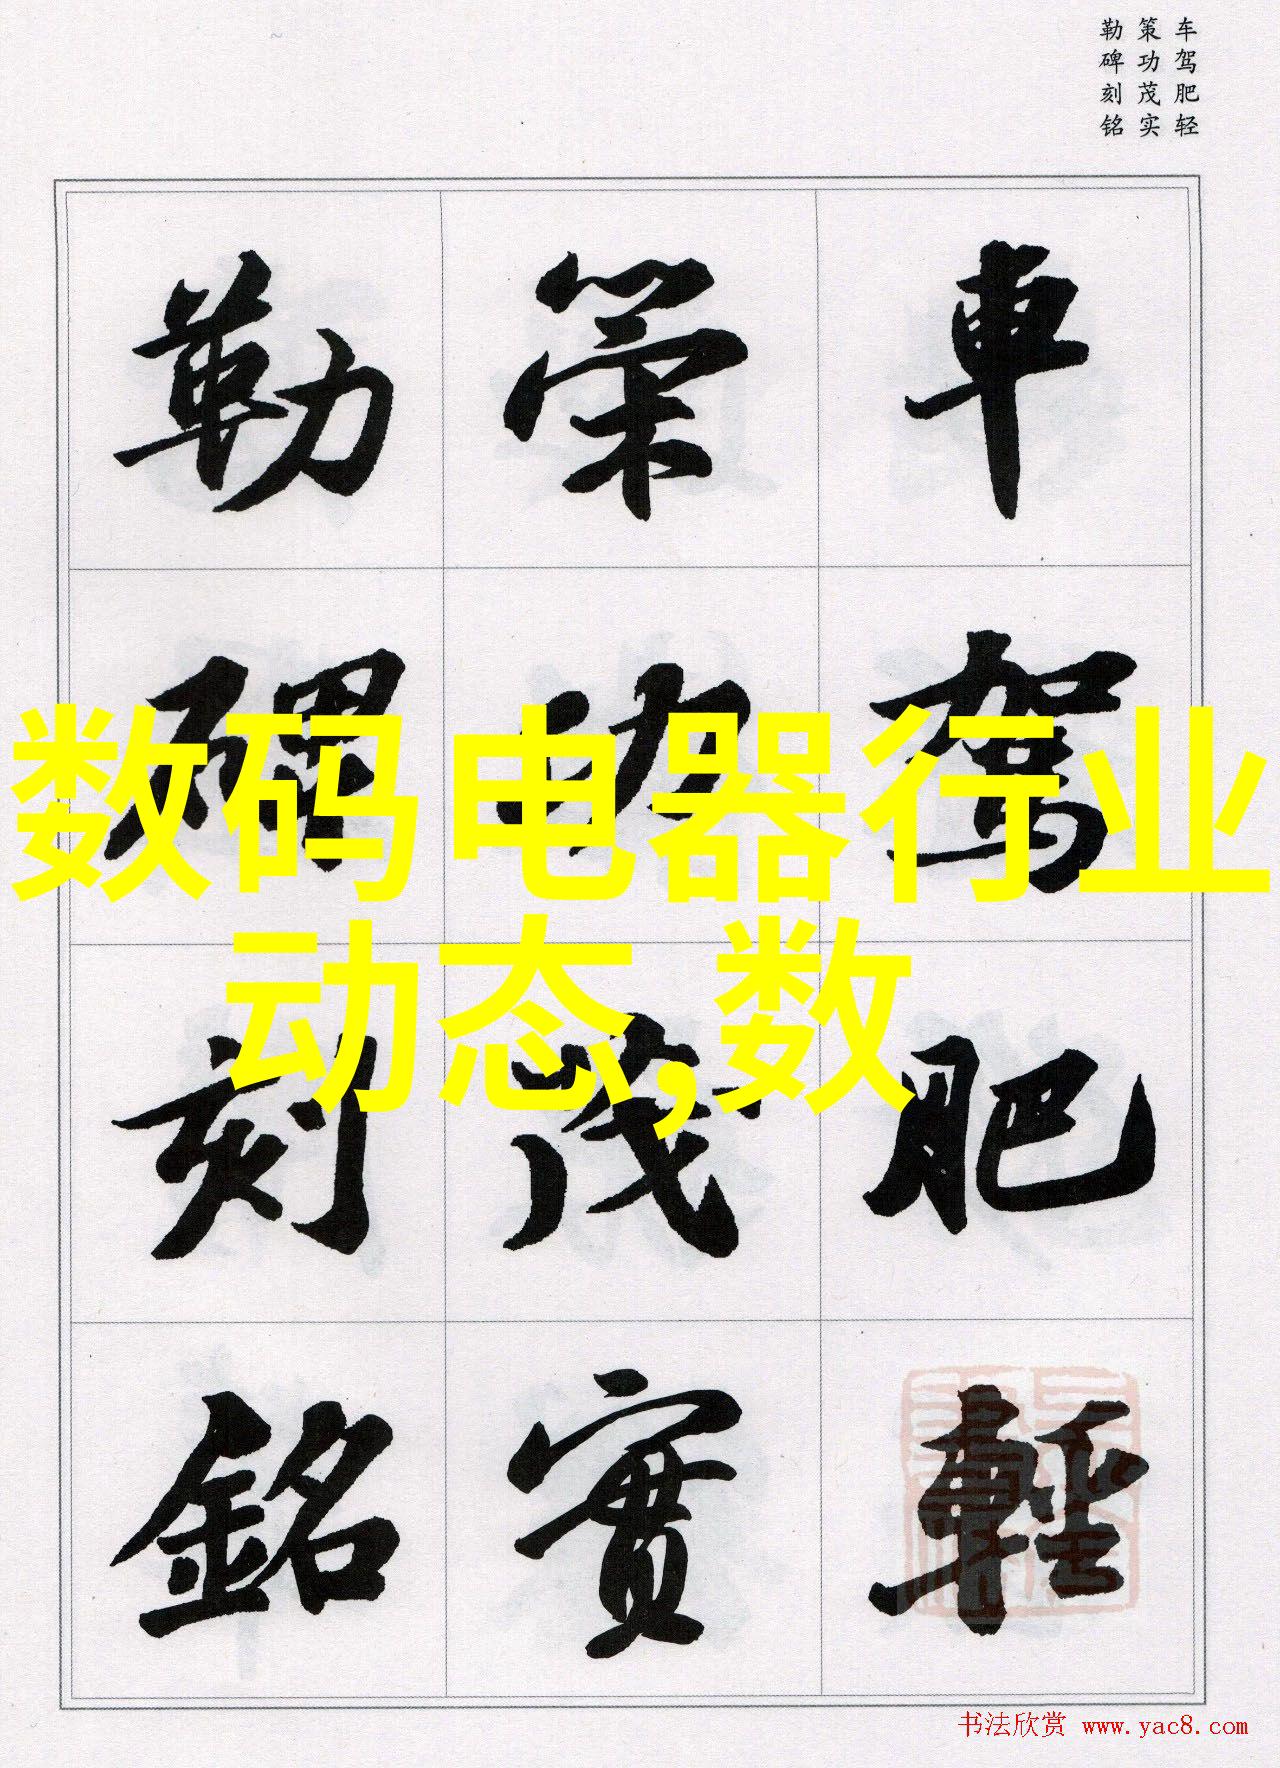 车驾肥轻
策功茂实
勒碑刻铭
車駕肥輕
策功茂實
勒碑刻銘
数码电器行业
动态,数
书法欣赏 www.yac8.com